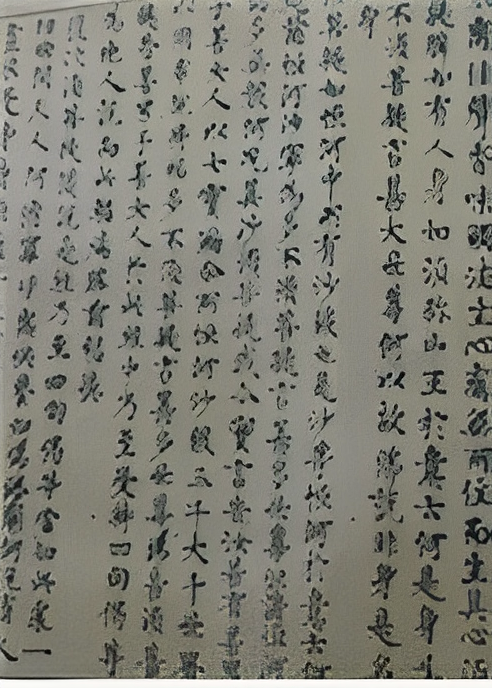 味觸法生心應無所住而生其心
如有人身如須彌山王於意云何是身
不須菩提言甚大世尊何以故佛說非身是名
身
如恒河中所有沙數如是沙等恒河於意云何
諸恒河沙寧為多不須菩提言甚多世尊但諸恒河
尚多無數何況其沙須菩提我今實言告汝若有善男
子善女人以七寶滿爾所恒河沙數三千大千世界
以用布施得福多不須菩提言甚多世尊佛告須菩
提若善男子善女人於此經中乃至受持四句偈等
為他人說而此福德勝前福德
復次須菩提隨說是經乃至四句偈等當知此處一
世間天人阿修羅皆應供養如佛塔廟何況有人